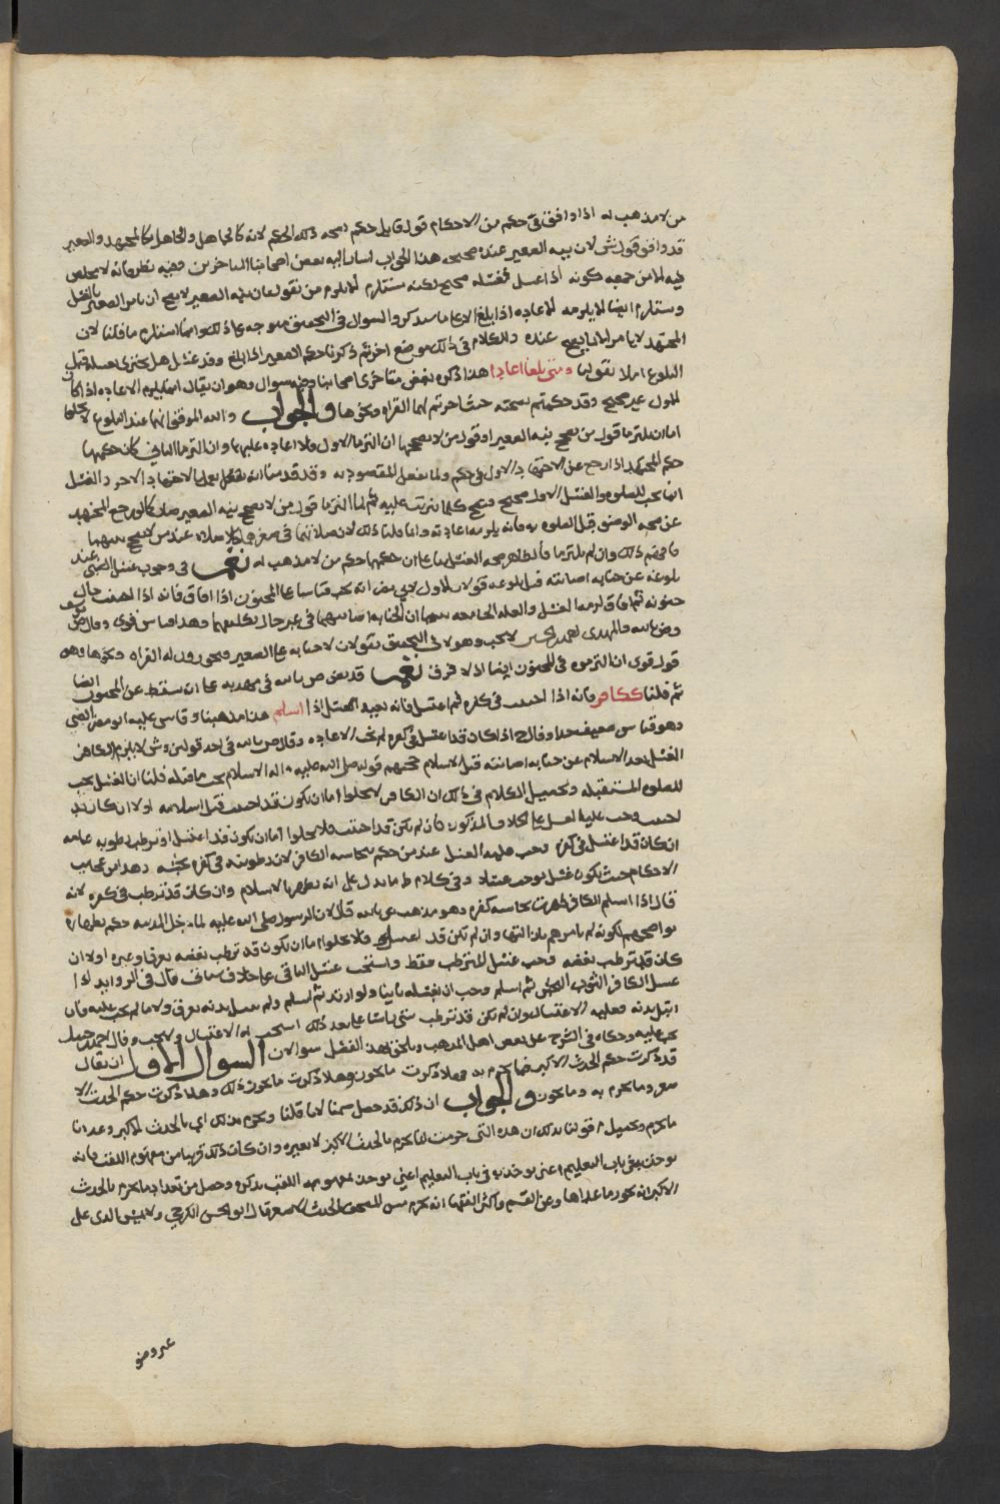 من لا مذهب له اذا وافق في حكم من الاحكام قول قايل حكم بصحة ذلك الحكم لانه كالجاهل والجاهل كالمجتهد والصغير
قد وافق قول ش لان نية الصغير عنده صحيحه هذا الجواب اشار اليه بعض اصحابنا المتاخرين وفيه نظر فانه لا يخلص
فيه لنا من جهة كونه اذا غسل فغسله صحيح لكنه يستلزم من يقول بان نية الصغير لا تصح ان يامر الصغير بالغسل
ويستلزم ايضا لا يلزمه الاعاده اذا بلغ والسؤال في التحقيق متوجه على ذلك وانما استلزم ما قلنا لان
المجتهد لا يامر الا بما يصح عنده والكلام في ذلك موضع اخر ثم ذكرنا حكم الصغير اذا بلغ وقد غسل هل يجتزي بغسله قبل
البلوغ ام لا بقولنا ومتى بلغا اعادا هذا ذكره بعض متاخري اصحابنا وفيه سؤال وهو ان يقال انما يلزم الاعاده اذا كان
الاول غير صحيح وقد حكمتم بصحته حيث اجزتم لهما القراه ونحوها والجواب والله الموفق انهما عند البلوغ لا يخلوا
اما ان يلتزما قول من يصحح نية الصغير او قول من لا يصححها ان التزما الاول فلا اعاده عليهما وان التزما الثاني كان حكمهما
حكم المجتهد اذا رجع عن الاجتهاد الاول في حكم ولما يفعل المقصود به وقد قدمنا انه يعمل بالاجتهاد الاخر والغسل
انما يجب للصلوه والغسل الاول صحيح وصح كلما يترتب عليه ثم لما التزما قول من لا يصحح نية الصغير صار كما لو رجع المجتهد
عن صحة الوضوء قبل الصلوه به فانه يلزمه اعادته وانما قلنا ذلك لان صلاتهما في صغرهما كلا صلاه عند من لا يصحح نيتهما
فافهم ذلك وان لم يلتزما فالظاهر صحة الغسل بناء على ان حكمهما حكم من لا مذهب له نعم في وجوب غسل الصبي عند
بلوغه عن جنابه اصابته قبل بلوغه قولان الاول لابي مضر انه يجب قياسا على المجنون اذا افاق فانه اذا اجنب حال
جنونه ثم افاق لزمه الغسل والعله الجامعه بينهما ان الجنابه اصابتهما في غير حال تكليفهما وهذا قياس قوي وقال ص ش
وض بالله والمهدي احمد بن الحسين لا يجب وهؤلاء في التحقيق يقولان لا جنابه على الصغير ويجوزون له القراه ونحوها وهو
قول قوي ان التزموه في المجنون ايضا اذ لا فرق نعم قد نص ص بالله في مهذبه على ان سقط عن المجنون ايضا
ثم قلنا ككافر فانه اذا اجنب في كفره ثم اغتسل فانه يعيد الغسل اذا اسلم هذا مذهبنا وقاس عليه ابو مضر الصبي
وهو قياس ضعيف جدا وقال ح اذا كان قد اغتسل في كفره لم تجب الاعاده وقال ص بالله في احد قوليه وش لا يلزم الكافر
الغسل بعد الاسلام عن جنابه اصابته قبل الاسلام حجتهم قوله صلى الله عليه واله الاسلام يجب ما قبله قلنا ان الغسل يجب
للصلوه المستقبله وتحصيل الكلام في ذلك ان الكافر لا يخلوا اما ان يكون قد اجنب قبل اسلامه او لا ان كان قد
اجنب وجب عليه الغسل على الخلاف المذكور فان لم يكن قد اجنب فلا يخلوا اما ان يكون قد اغتسل او ترطب
ان كان قد اغتسل في كفره وجب عليه الغسل عند من حكم بنجاسة الكافر لان رطوبته في كفره نجسه وهذا من عجايب
الاحكام حيث يكون غسل يوجب غسلا وفي كلام ط ما يدل على انه يطهر بالاسلام وان كان قد ترطب في كفره لانه
قال اذا اسلم الكافر طهرت نجاسة كفره وهو مذهب ص بالله قال لان الرسول صلى الله عليه لما دخل المدينه حكم بطهارة
نواضحهم لكونه لم يامرهم وان لم يكن قد اغتسل فلا يخلوا اما ان يكون قد ترطب بعضه بعرق وغيره او لا ان
كان قد ترطب بعضه وجب غسل المترطب فقط واستحب غسل الباقي على خلاف قال في الزوايد اذا
غسل الكافر الثوب النجس ثم اسلم وجب ان يغسله ثانيا ولو ارتد ثم اسلم ولم يبتل بدنه بعرق ولا ما لم يجب عليه فان
ابتل بدنه فعليه الاغتسال وان لم يكن قد ترطب بعد ذلك استحب له الاغتسال ولا يجب وقال احمد بن حنبل
يجب عليه وحكاه في الشرح عن بعض اهل المذهب ويلحق بهذا الفصل سؤالان السؤال الاول ان يقال
قد ذكرت حكم الحدث الاكبر فيما يحرم به فهلا ذكرت ما يجوز وهلا ذكرت ما يجوز ذلك وهلا ذكرت حكم الحدث الا
صغر وما يحرم به وما يجوز والجواب ان ذلك قد حصل ضمنا لانا قلنا ويحرم بذلك اي بالحدث الاكبر وعددنا
ما يحرم وتحصيل قولنا بذلك ان هذه التي حرمت انما تحرم بالحدث الاكبر لا بغيره وان كان ذلك قريبا من مفهوم اللقب فانه
يوخذ به في باب التعليم اعني يوخذ به في باب التعليم اعني يوخذ بمفهوم اللقب بذكره وحصل من تعداد ما يحرم بالحدث
الاكبر انه يجوز ما عداها وعن القسم واكثر الفقها انه يحرم مس المصحف بالحدث الاصغر قال ابو الحسن الكرخي ولا يمس الذي على
غير وضو